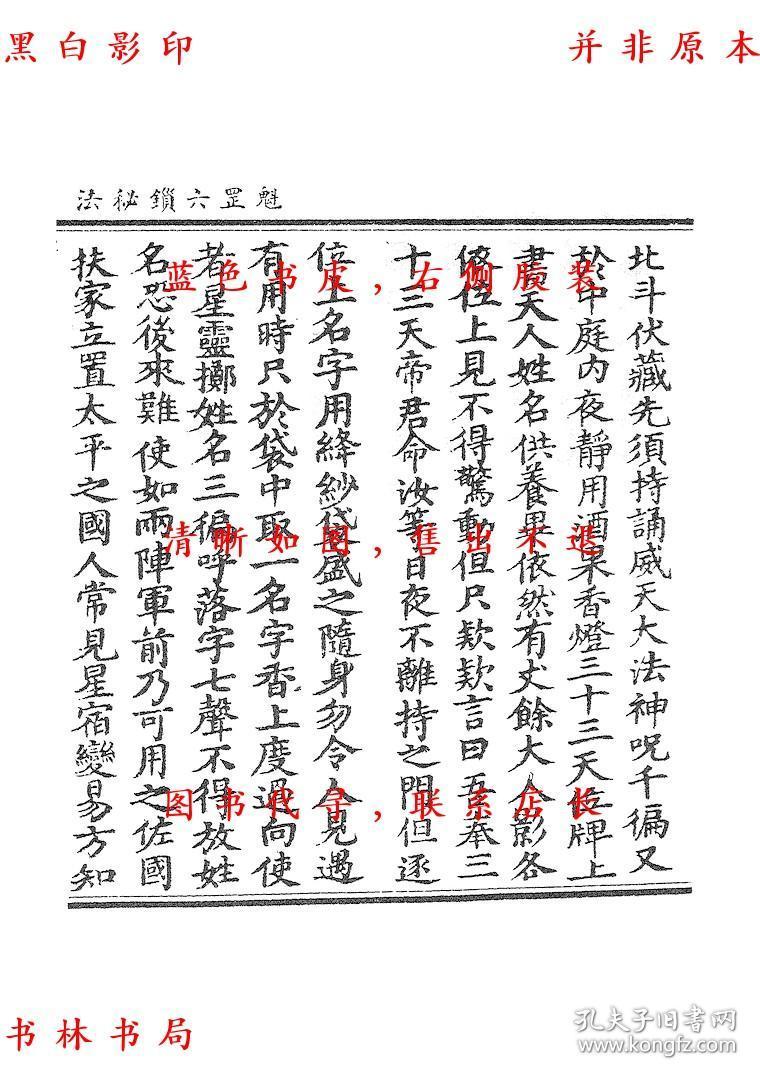 黑白影印
并非原本
魁罡六鎖秘法
北斗伏藏先須持誦威天大法神呪千徧又
於中庭内夜靜用酒果香燈三十三天位牌上
書天人姓名供養畢依然有丈餘大人影各
依位上見不得驚動但只欵欵言曰吾奉三
十三天帝君命汝等日夜不離持之門但逐
位上名字用絳紗袋盛之隨身勿令人見遇
有用時只於袋中取一名字香上度過向使
者星靈擲姓名三徧呼落字七聲不得放姓
名恐後來難使如兩陣軍前乃可用之佐國
扶家立置太平之國人常見星宿變易方知
蓝色书皮，右侧胶装
清晰如图，售出不退
图书代寻，联系店长
书林书局
孔夫子旧书网
kongfz.com